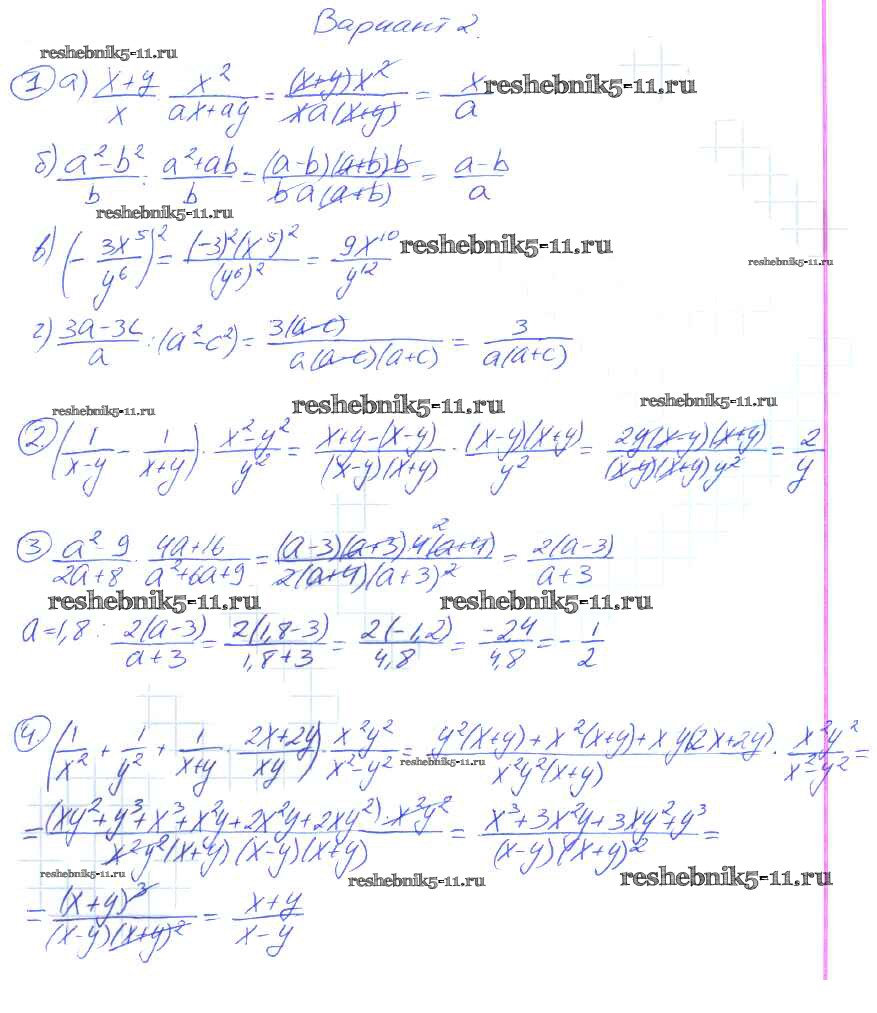 Вариант 2.
reshebnik5-11.ru
① а) (x+y)/x · x²/(ax+ay) = ((x+y)x²)/(xa(x+y)) = x/a reshebnik5-11.ru
б) (a²-b²)/b : (a²+ab)/b = ((a-b)(a+b)b)/(ba(a+b)) = (a-b)/a
reshebnik5-11.ru
в) (-3x⁵/y⁶)² = ((-3)²(x⁵)²)/(y⁶)² = 9x¹⁰/y¹² reshebnik5-11.ru
reshebnik5-11.ru
г) (3a-3c)/a : (a²-c²) = 3(a-c)/(a(a-c)(a+c)) = 3/(a(a+c))
reshebnik5-11.ru reshebnik5-11.ru reshebnik5-11.ru
② (1/(x-y) - 1/(x+y)) · (x²-y²)/y² = (x+y-(x-y))/((x-y)(x+y)) · ((x-y)(x+y))/y² = (2y(x-y)(x+y))/((x-y)(x+y)y²) = 2/y
③ (a²-9)/(2a+8) · (4a+16)/(a²+6a+9) = ((a-3)(a+3)·4(a+4))/(2(a+4)(a+3)²) = 2(a-3)/(a+3)
reshebnik5-11.ru reshebnik5-11.ru
a=1,8 : 2(a-3)/(a+3) = 2(1,8-3)/(1,8+3) = 2(-1,2)/4,8 = -2,4/4,8 = -1/2
④ (1/x² + 1/y² + 1/(x+y) · (2x+2y)/xy) · x²y²/(x²-y²) = (y²(x+y)+x²(x+y)+xy(2x+2y))/(x²y²(x+y)) · x²y²/(x²-y²) =
reshebnik5-11.ru
= ((xy²+y³+x³+x²y+2x²y+2xy²)·x²y²)/(x²y²(x+y)(x-y)(x+y)) = (x³+3x²y+3xy²+y³)/((x-y)(x+y)²) =
reshebnik5-11.ru reshebnik5-11.ru reshebnik5-11.ru
= (x+y)³/((x-y)(x+y)²) = (x+y)/(x-y)